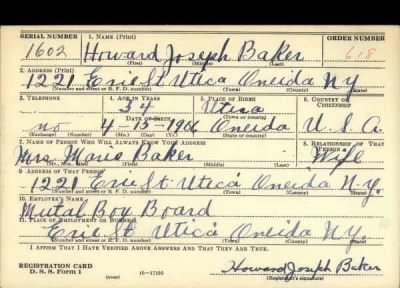 SERIAL NUMBER 1. NAME (Print) ORDER NUMBER
1602 Howard Joseph Baker 618
(First) (Middle) (Last)
2. ADDRESS (Print)
1221 Erie St Utica Oneida N.Y.
(Number and street or R. F. D. number) (Town) (County) (State)
3. TELEPHONE 4. AGE IN YEARS 5. PLACE OF BIRTH 6. COUNTRY OF CITIZENSHIP
34 Utica
DATE OF BIRTH (Town or county)
no 4 1906 Oneida U.S.A.
(Mo.) (Day) (Yr.) (State or country)
7. NAME OF PERSON WHO WILL ALWAYS KNOW YOUR ADDRESS 8. RELATIONSHIP OF THAT PERSON
Mrs. Marie Baker Wife
(Mr., Mrs., Miss) (First) (Middle) (Last)
9. ADDRESS OF THAT PERSON
1221 Erie St Utica Oneida N.Y.
(Number and street or R. F. D. number) (Town) (County) (State)
10. EMPLOYER'S NAME
Mutal Box Board
11. PLACE OF EMPLOYMENT OR BUSINESS
Erie St Utica Oneida N.Y.
(Number and street or R. F. D. number) (Town) (County) (State)
I AFFIRM THAT I HAVE VERIFIED ABOVE ANSWERS AND THAT THEY ARE TRUE.
REGISTRATION CARD
D. S. S. Form 1 Howard Joseph Baker
(Registrant's signature)